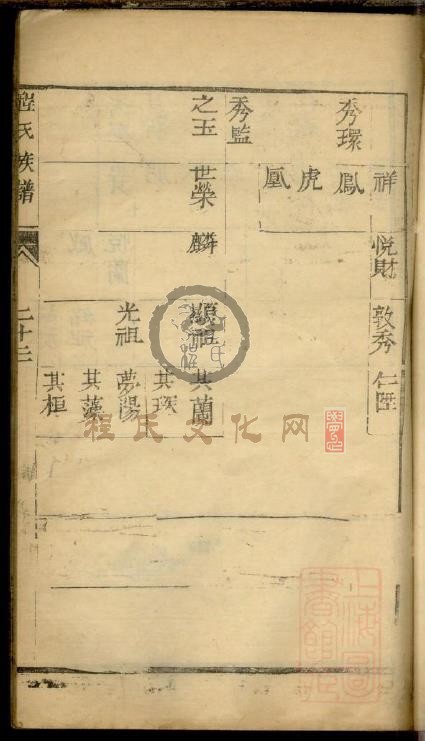 祥 悅財 敦秀 仁陞
秀環 鳳
虎
凰
秀監
之玉 世榮 麟 顯祖 其蘭
其璞
光祖 夢陽
其藻
其桓
程氏族譜 二十三
程氏文化网
上海圖書館藏